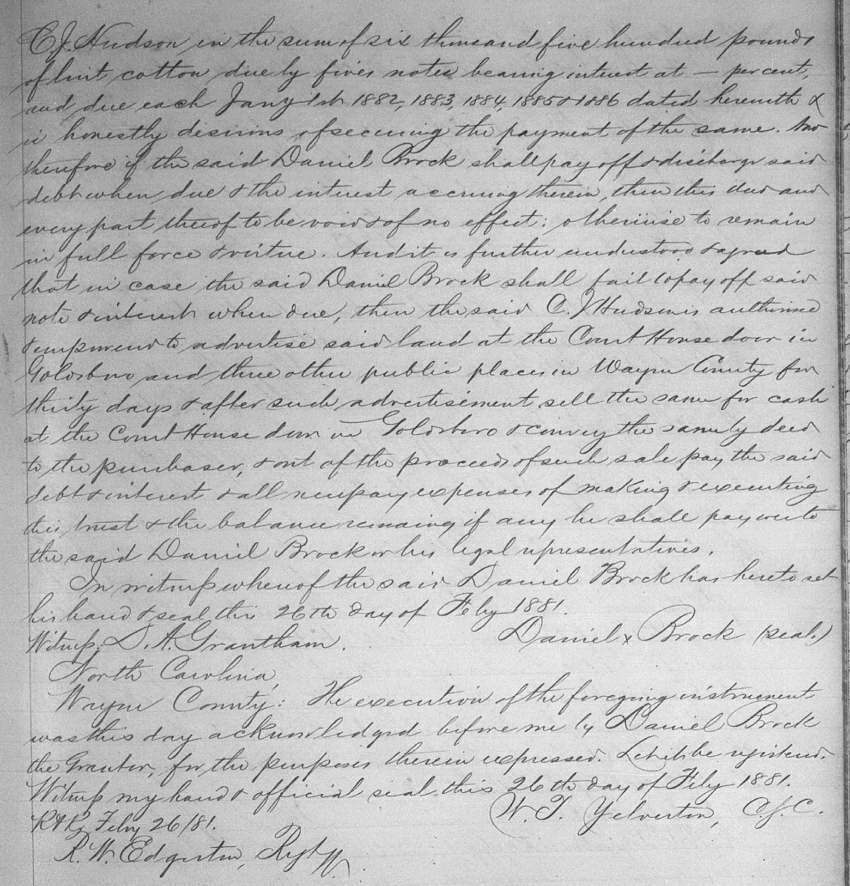 C. J. Hudson in the sum of six thousand five hundred pounds
of lint cotton due by five notes bearing interest at — per cent,
and due each Jany 1st 1882, 1883, 1884, 1885 & 1886 dated herewith &
is honestly desirous of securing the payment of the same. Now
therefore if the said Daniel Brock shall pay off & discharge said
debt when due & the interest accruing therein, then this deed and
every part thereof to be void & of no effect: otherwise to remain
in full force & virtue. And it is further understood & agreed
that in case the said Daniel Brock shall fail to pay off said
note & interest when due, then the said C. J. Hudson is authorised
& empowered to advertise said land at the Court House door in
Goldsboro and three other public places in Wayne County for
thirty days & after such advertisement sell the same for cash
at the Court House door in Goldsboro & convey the same by deed
to the purchaser, & out of the proceeds of such sale pay the said
debt & interest & all necessary expenses of making & executing
this trust & the balance remaing if any he shall pay over to
the said Daniel Brock or his legal representatives.
In witness whereof the said Daniel Brock has hereto set
his hand & seal this 26th day of Feby 1881.
Witness, D. A. Grantham. Daniel x Brock (seal.)
North Carolina,
Wayne County: The execution of the foregoing instrument
was this day acknowledged before me by Daniel Brock
the Grantor, for the purposes therein expressed. Let it be registered.
Witness my hand & official seal this 26th day of Feby 1881.
W. T. Yelverton, C.S.C.
R & R, Febry 26/81.
R. W. Edgerton, Regt